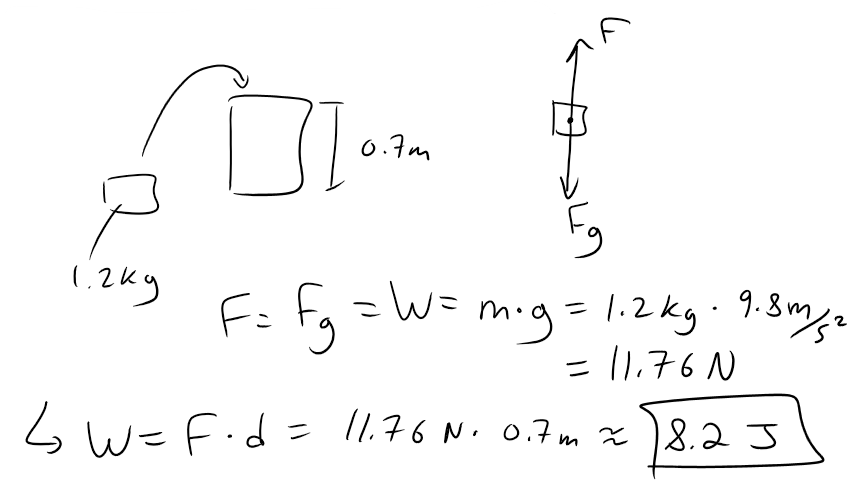 F
0.7m
Fg
1.2kg
F = Fg = W = m·g = 1.2kg · 9.8m/s²
= 11.76 N
↳ W = F·d = 11.76 N · 0.7m ≈ 8.2 J